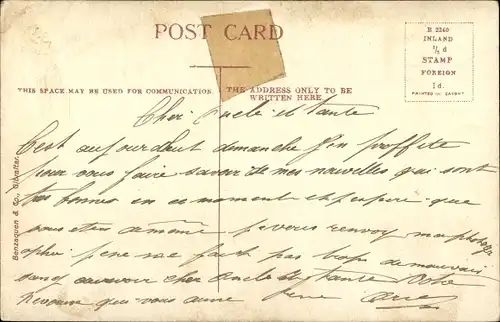 POST CARD
B 2340
INLAND
½ d
STAMP
FOREIGN
1d.
PRINTED IN SAXONY
THIS SPACE MAY BE USED FOR COMMUNICATION.
THE ADDRESS ONLY TO BE
WRITTEN HERE.
Benzaquen & Co., Gibraltar.
Cher Oncle et tante
C'est aujourdaut dimanche J'en proffite
pour vous faire savoir de mes nouvelles qui sont
tres bonnes en ce moment et j'espere que
vous etes de même je vous renvoy ma photogr
aphie je ne me fait pas trop de mauvai
sang au revoir cher Oncle et tante Votre
Neveu que vous aime